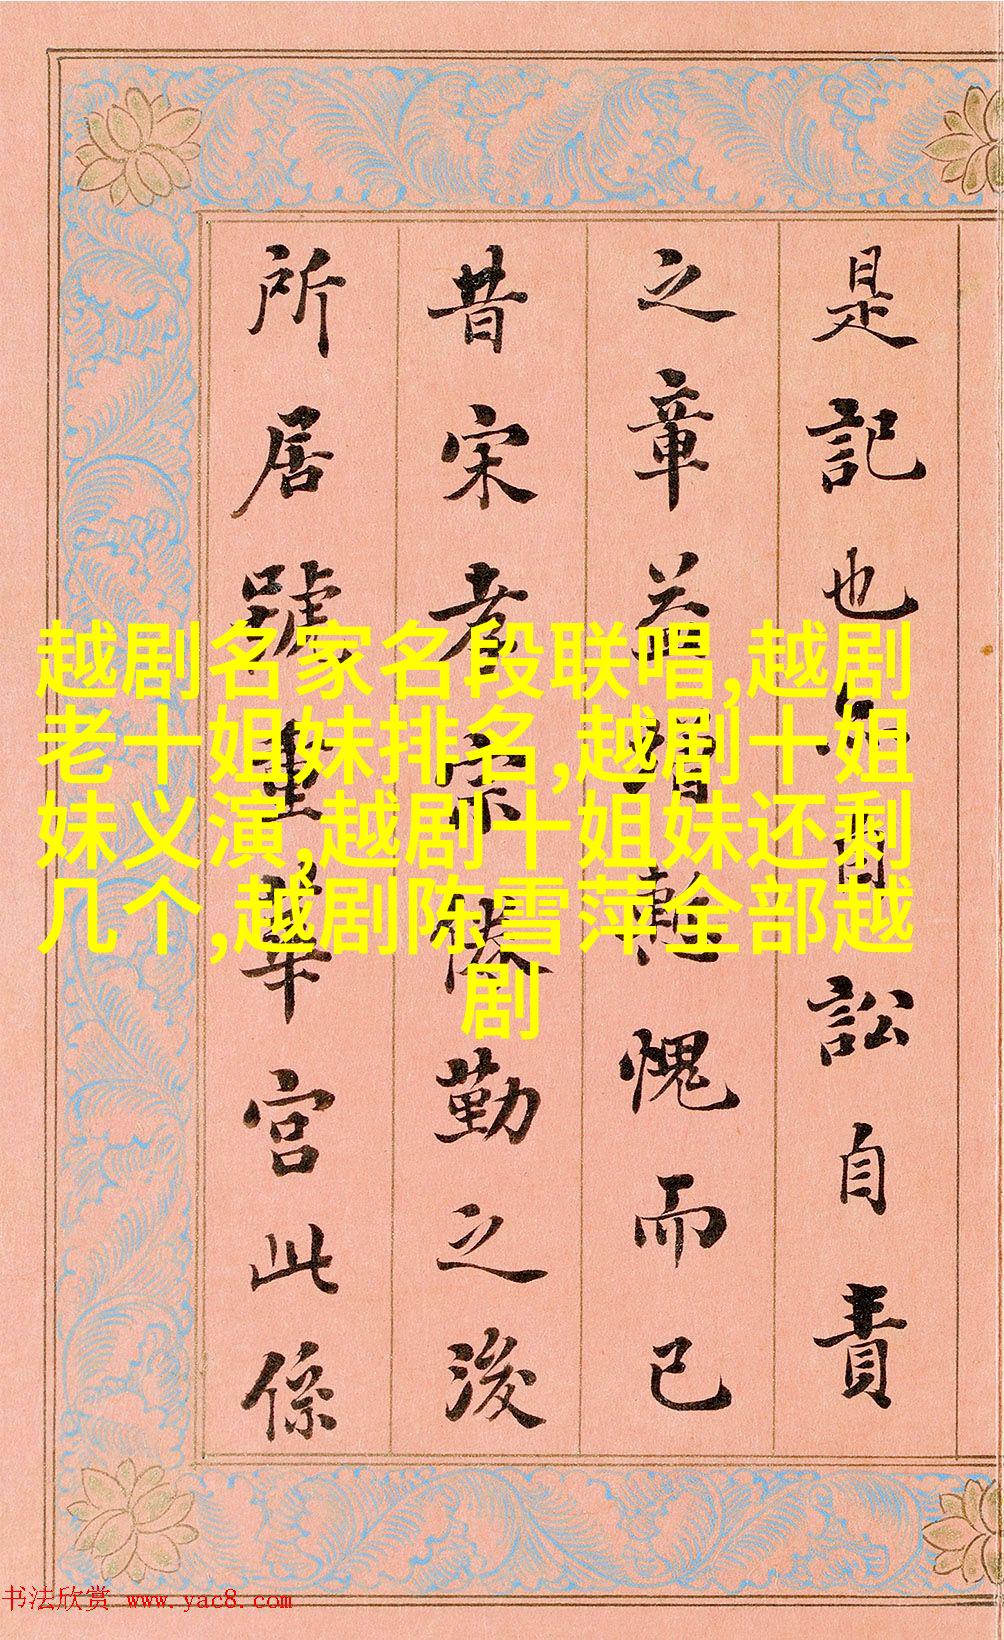 是記也訟自責
之章益增愧而已
昔宋孝宗倦勤之後
所居號重華宮此係
越剧名家名段联唱,越剧
老十姐妹排名,越剧十姐
妹义演,越剧十姐妹还剩
几个,越剧陈雪萍全部越
剧
书法欣赏 www.yac8.com